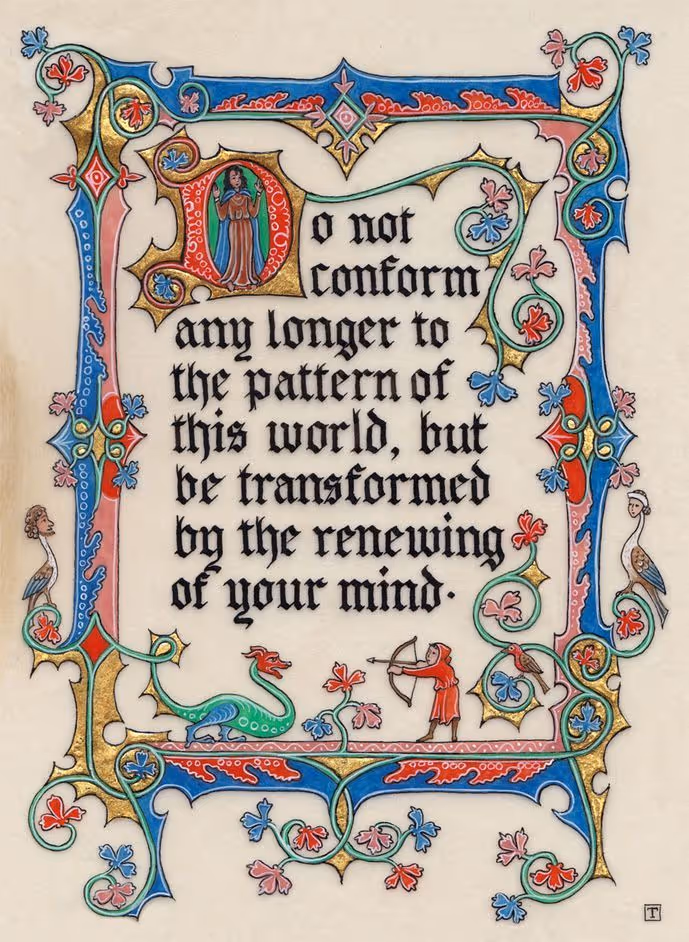 Do not
conform
any longer to
the pattern of
this world, but
be transformed
by the renewing
of your mind·
T